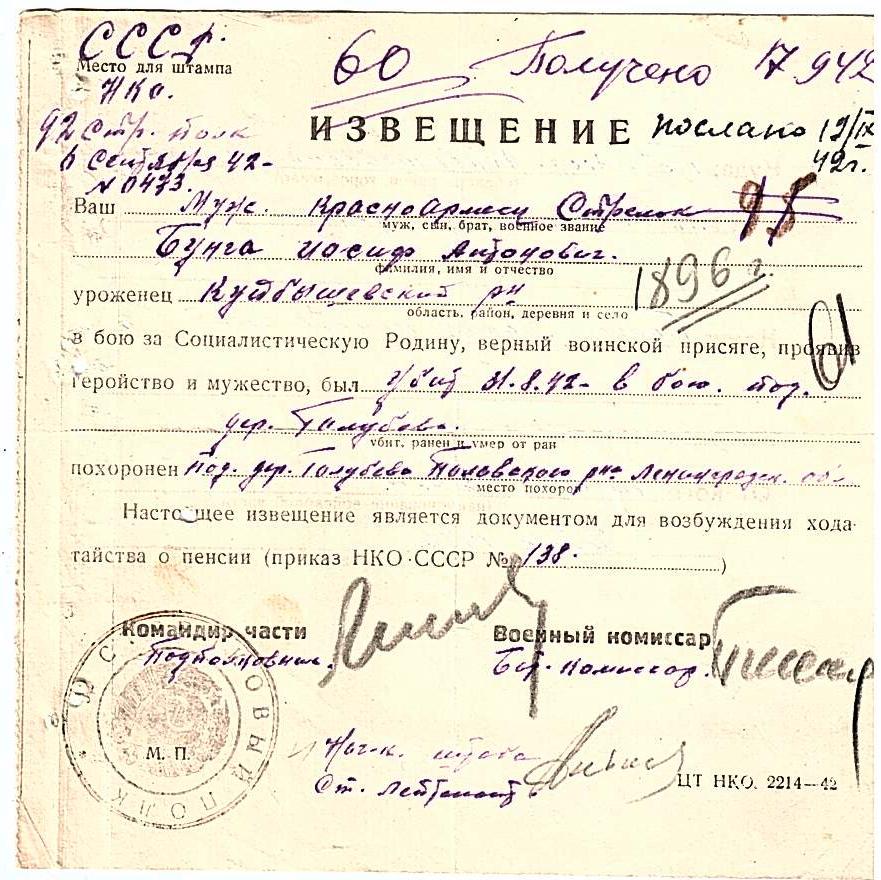 СССР.
Место для штампа
НКО.
60 Получено 17 942
92 Стр. полк
ИЗВЕЩЕНИЕ послано 12/IX
42г.
6 Сентября 42-
N 0473.
Ваш Муж. Красноармеец Стрелок
муж, сын, брат, военное звание
Бунга Иосиф Антонович.
фамилия, имя и отчество
уроженец Куйбышевский рн 1896 г.
область, район, деревня и село
в бою за Социалистическую Родину, верный воинской присяге, проявив
61
геройство и мужество, был убит 31.8.42- в бою. под.
дер. Голубево.
убит, ранен и умер от ран
похоронен Под. дер. Голубево рна Ленинградск. обл
место похорон
Настоящее извещение является документом для возбуждения хода-
тайства о пенсии (приказ НКО СССР № 138. )
Командир части Военный комиссар
Подполковник. Бат. Комиссар.
92 СТРЕЛКОВЫЙ ПОЛК
М. П.
Нач-к. штаба
Ст. Лейтенант
ЦТ НКО. 2214—42